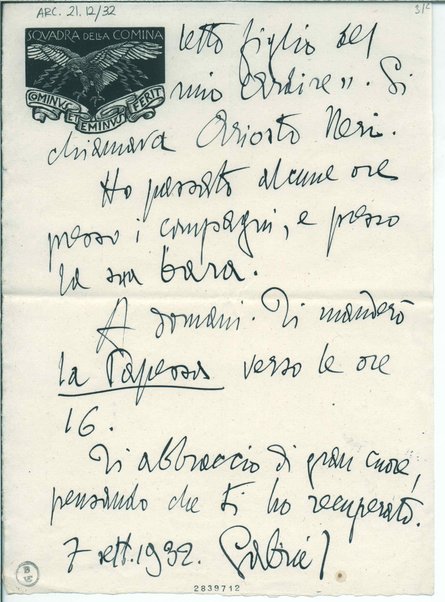 ARC. 21.12/32
SQVADRA DELLA COMINA
COMINVS ET EMINVS FERIT
letto figlio del
mio ardire". Si
chiamava Ariosto Neri.
Ho passato alcune ore
presso i compagni, e presso
la sua bara.
A domani. Ti manderò
la Papessa verso le ore
16.
Ti abbraccio di gran cuore,
pensando che ti ho recuperato.
7 sett. 1932. Gabriel
2839712